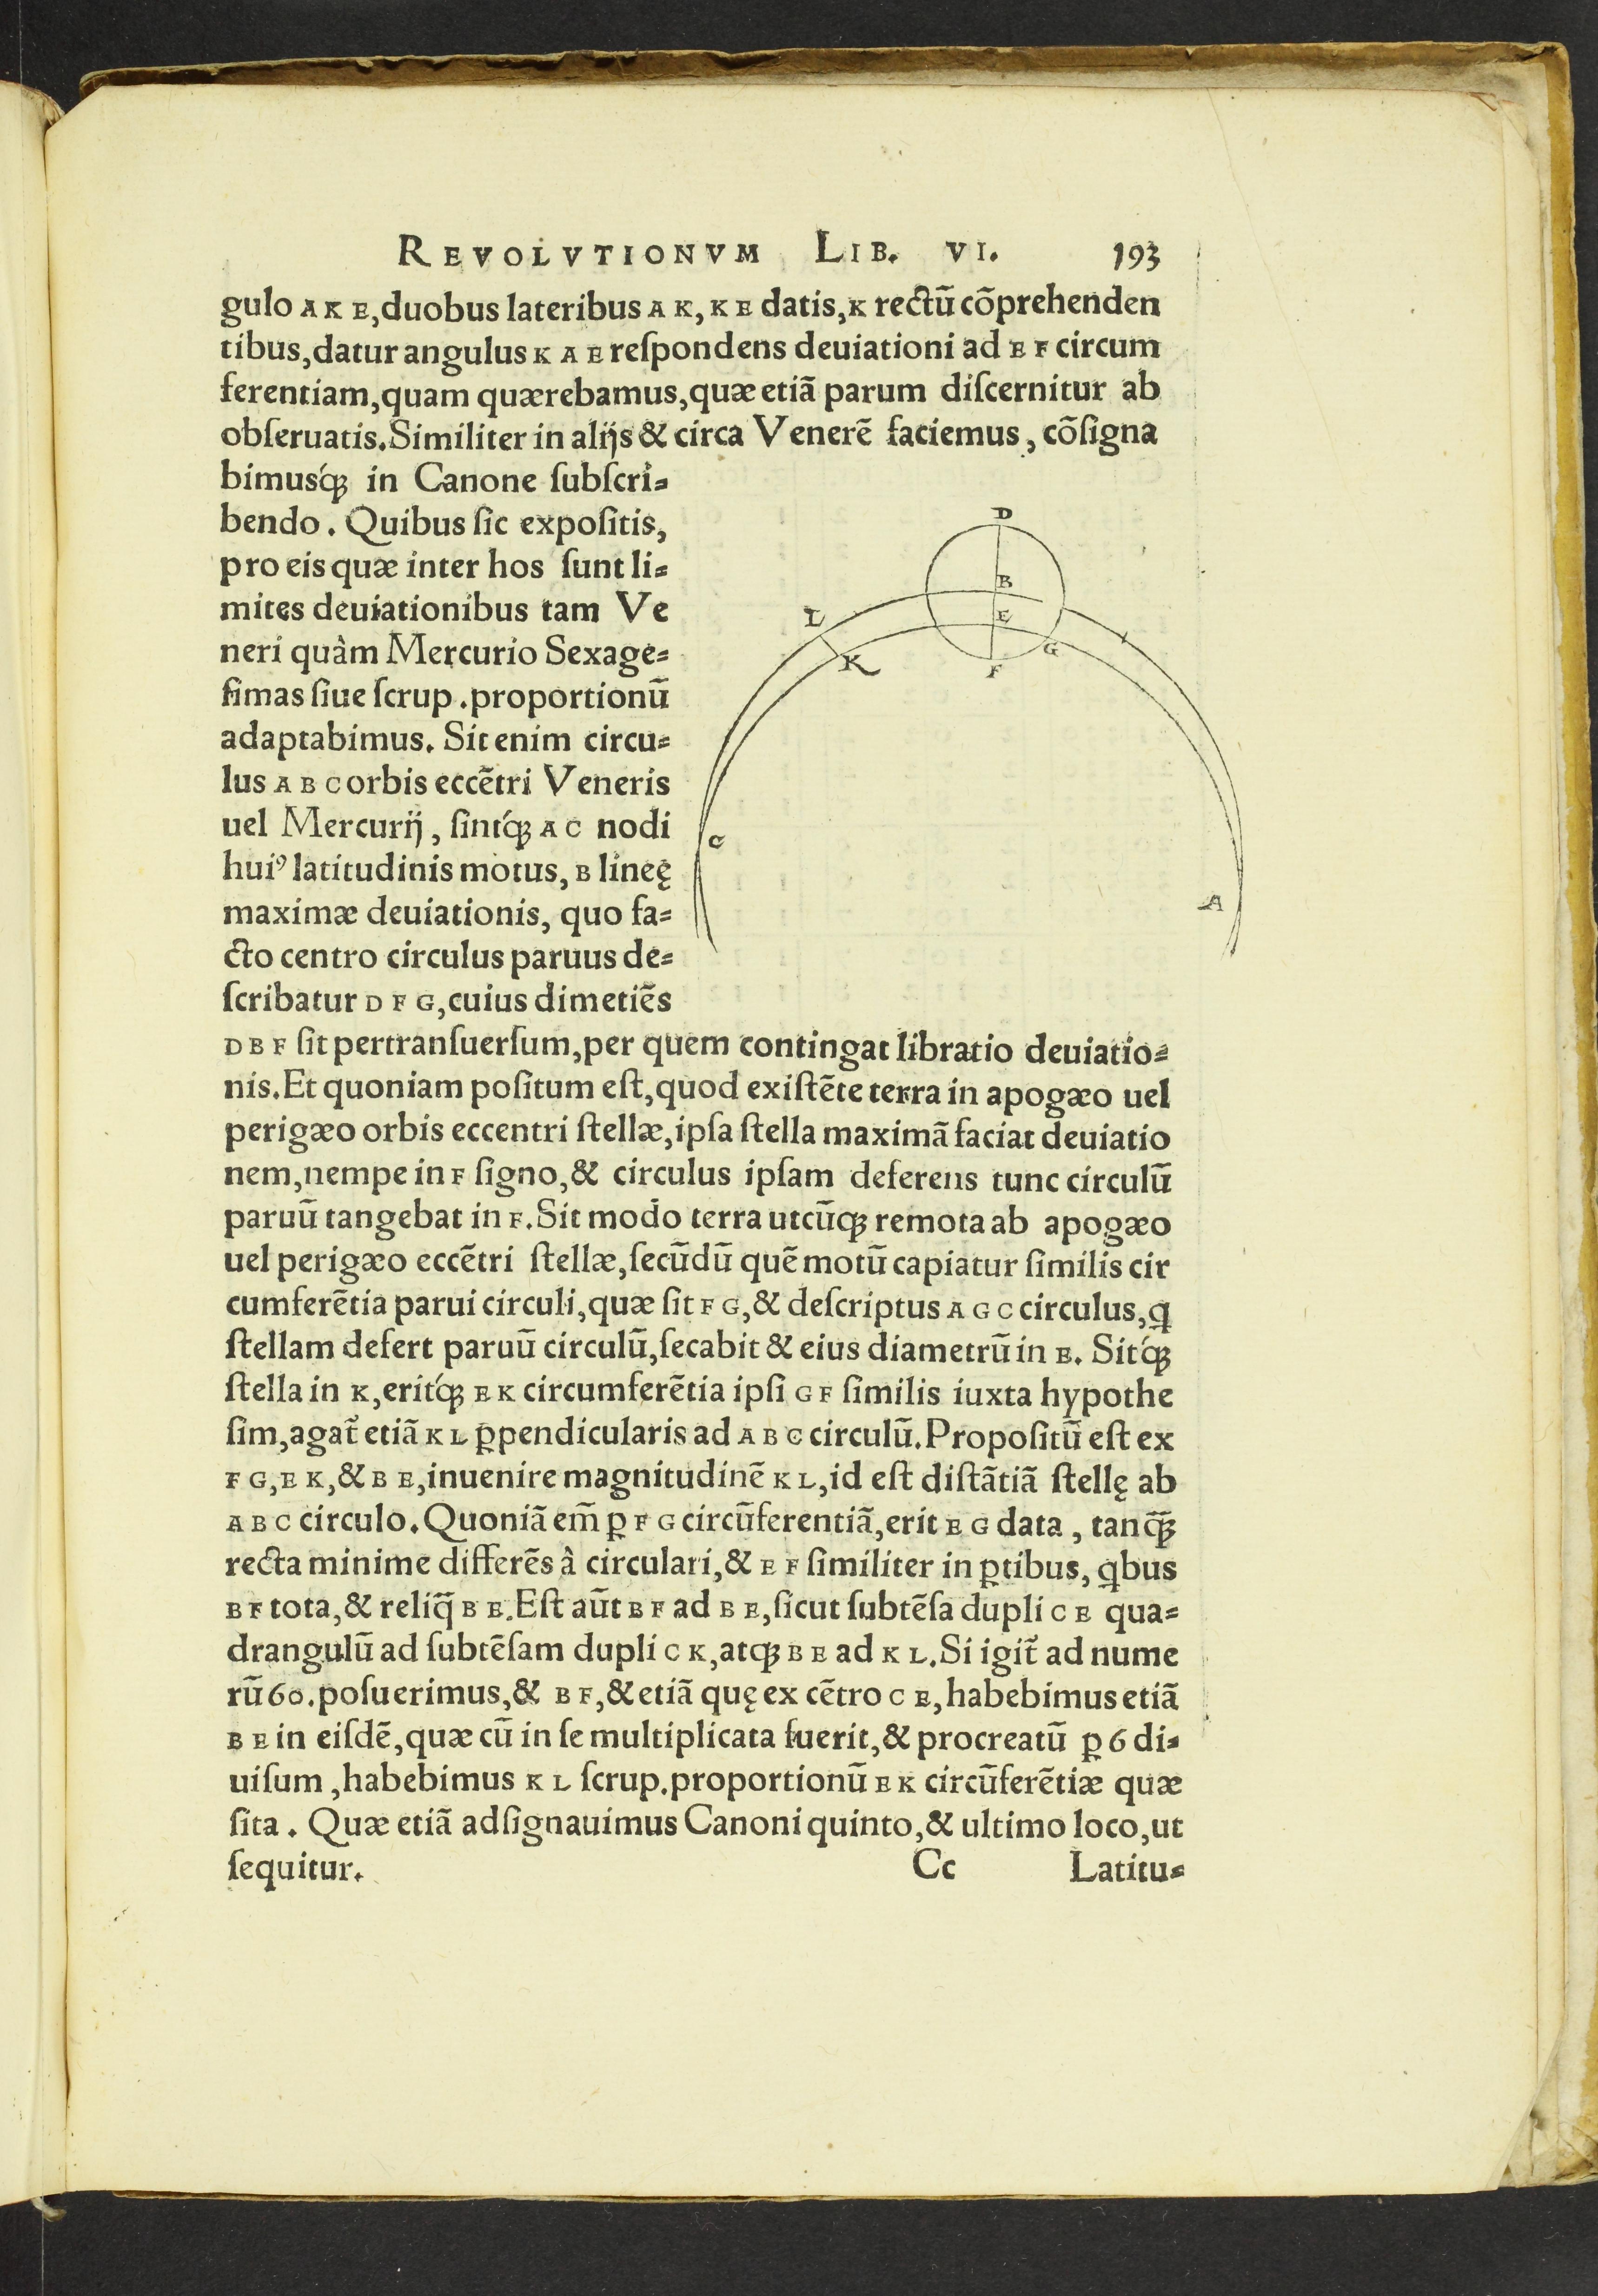 REVOLVTIONVM LIB. VI. 193
gulo A K E, duobus lateribus A K, K E datis, K rectũ cõprehenden
tibus, datur angulus K A E reſpondens deuiationi ad E F circum
ferentiam, quam quærebamus, quæ etiã parum diſcernitur ab
obſeruatis. Similiter in alijs & circa Venerẽ faciemus, cõſigna
bimusq́ꝫ in Canone ſubſcri⸗
bendo. Quibus ſic expoſitis,
pro eis quæ inter hos ſunt li⸗
mites deuiationibus tam Ve
neri quàm Mercurio Sexage⸗
ſimas ſiue ſcrup. proportionũ
adaptabimus. Sit enim circu⸗
lus A B C orbis eccẽtri Veneris
uel Mercurij, ſintq́ꝫ A C nodi
huiꝰ latitudinis motus, B lineę
maximæ deuiationis, quo fa⸗
cto centro circulus paruus de⸗
ſcribatur D F G, cuius dimetiẽs
D
B
L
E
K
G
F
C
A
D B F ſit pertranſuerſum, per quem contingat libratio deuiatio⸗
nis. Et quoniam poſitum eſt, quod exiſtẽte terra in apogæo uel
perigæo orbis eccentri ſtellæ, ipſa ſtella maximã faciat deuiatio
nem, nempe in F ſigno, & circulus ipſam deferens tunc circulũ
paruũ tangebat in F. Sit modo terra utcũqꝫ remota ab apogæo
uel perigæo eccẽtri ſtellæ, ſecũdũ quẽ motũ capiatur ſimilis cir
cumferẽtia parui circuli, quæ ſit F G, & deſcriptus A G C circulus, ꝗ
ſtellam defert paruũ circulũ, ſecabit & eius diametrũ in E. Sitq́ꝫ
ſtella in K, eritq́ꝫ E K circumferẽtia ipſi G F ſimilis iuxta hypothe
ſim, agat᷑ etiã K L ꝑpendicularis ad A B C circulũ. Propoſitũ eſt ex
F G, E K, & B E, inuenire magnitudinẽ K L, id eſt diſtãtiã ſtellę ab
A B C circulo. Quoniã em̃ ꝑ F G circũferentiã, erit E G data, tanq̃ꝫ
recta minime differẽs à circulari, & E F ſimiliter in ꝑtibus, ꝗbus
B F tota, & reliq̃ B E. Eſt aũt B F ad B E, ſicut ſubtẽſa dupli C E qua⸗
drangulũ ad ſubtẽſam dupli C K, atqꝫ B E ad K L. Si igit᷑ ad nume
rũ 60. poſuerimus, & B F, & etiã quę ex cẽtro C E, habebimus etiã
B E in eiſdẽ, quæ cũ in ſe multiplicata fuerit, & procreatũ ꝑ 6 di⸗
uiſum, habebimus K L ſcrup. proportionũ E K circũferẽtiæ quæ
ſita. Quæ etiã adſignauimus Canoni quinto, & ultimo loco, ut
ſequitur. Cc Latitu⸗